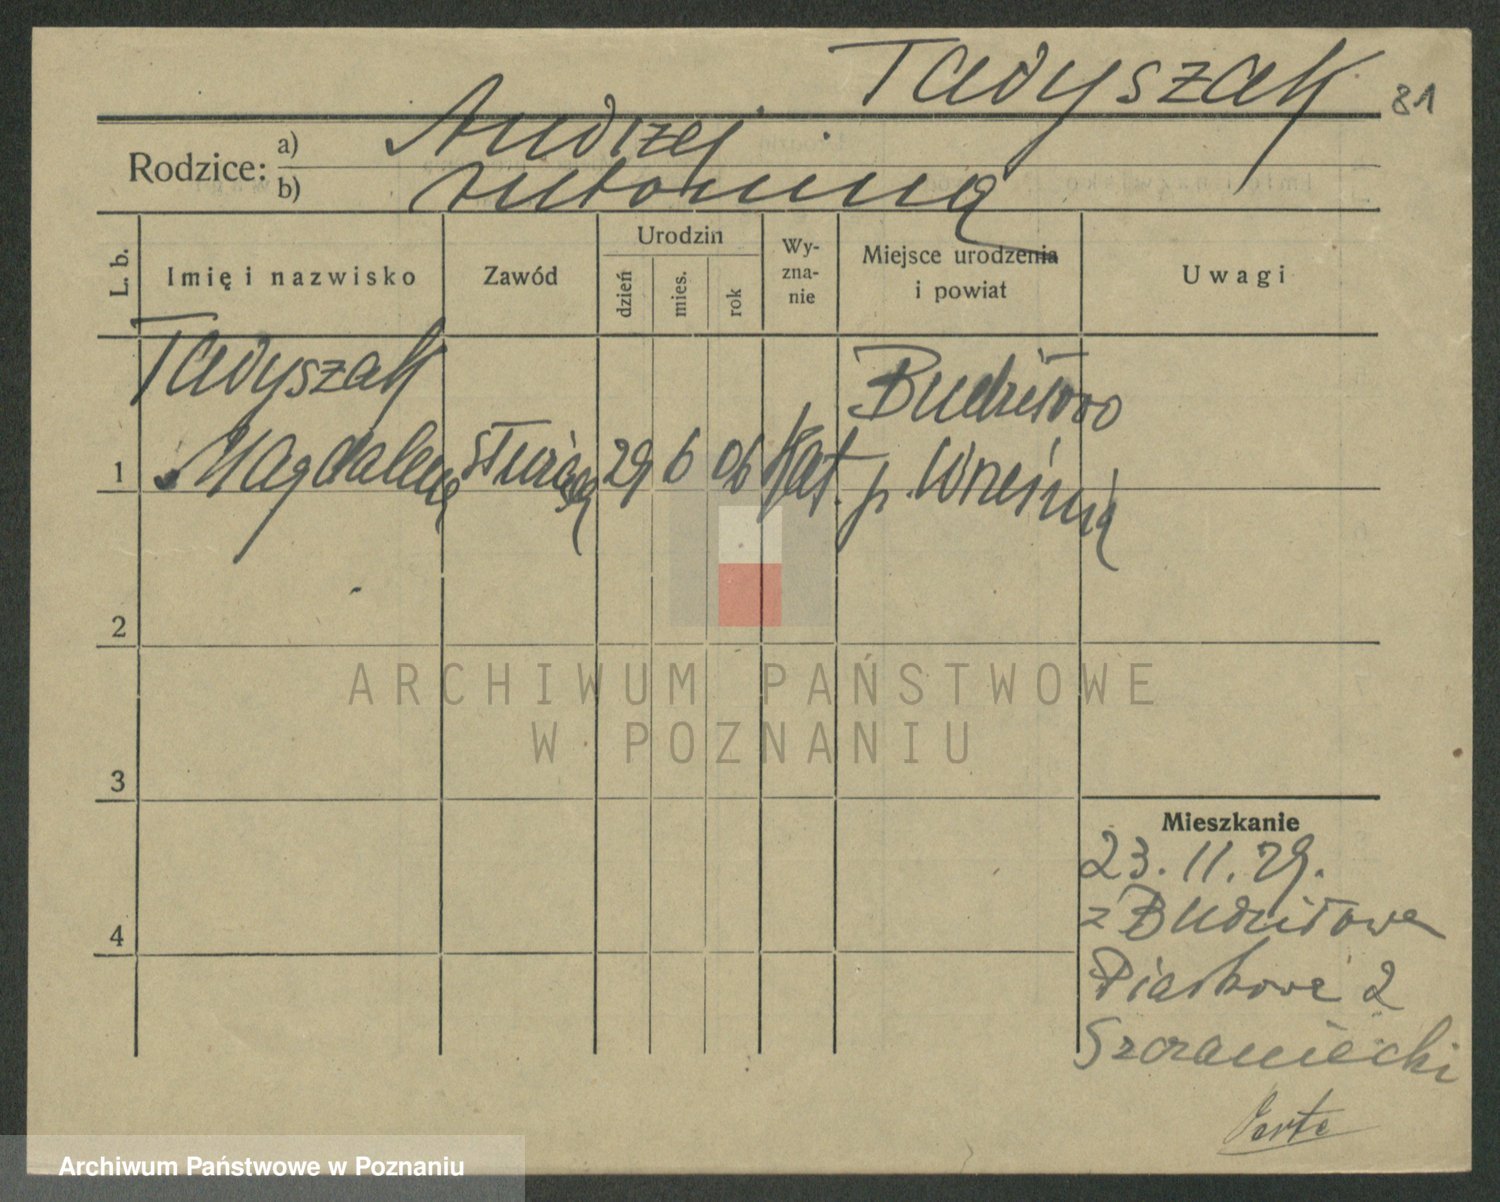 Tadyszak 81
Rodzice: a) Andrzej
b) Antonina
L. b.
Imię i nazwisko
Zawód
Urodzin
dzień
mies.
rok
Wy-
zna-
nie
Miejsce urodzenia
i powiat
Uwagi
Tadyszak
Magdalena
służąca
29
6
06
kat.
Budziłowo
p. Września
1
2
3
4
ARCHIWUM PAŃSTWOWE
W POZNANIU
Mieszkanie
23.11.29.
z Budziłowa
Piaskowe 2
Szczaniecki
Archiwum Państwowe w Poznaniu